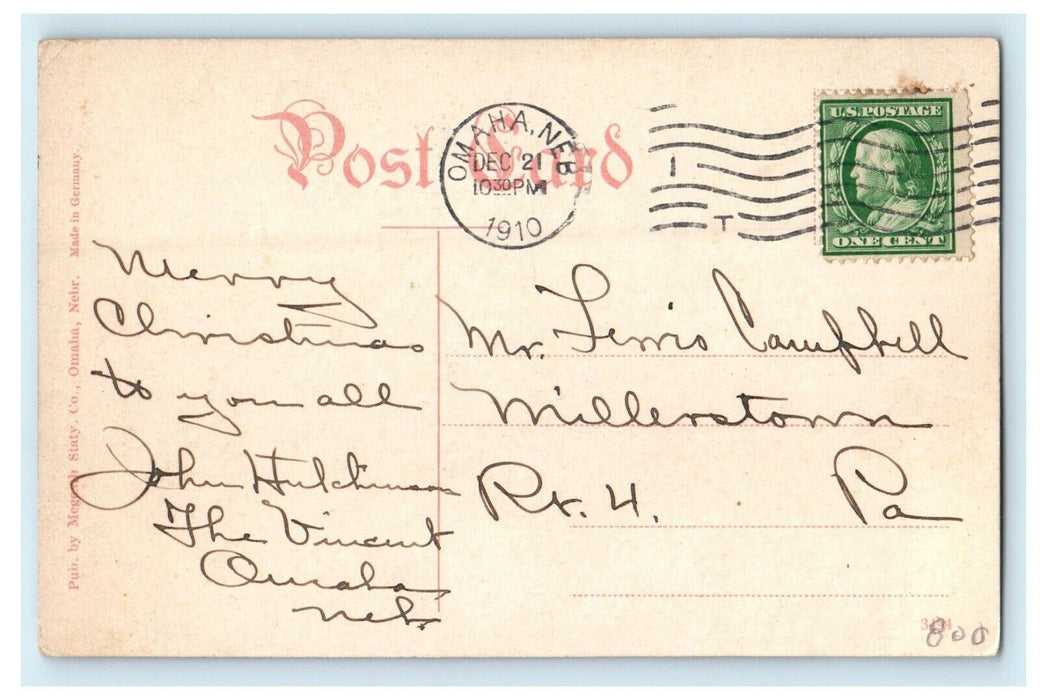 Post Card
OMAHA, NEB
DEC 21
10 30 PM
1910
1
T
U.S. POSTAGE
ONE CENT
Merry
Christmas
to you all
John Hutchinson
The Vincent
Omaha
Neb.
Mr. Lewis Campbell
Millerstown
Rt. 4. Pa
Pub. by Staty. Co., Omaha, Nebr. Made in Germany.
800